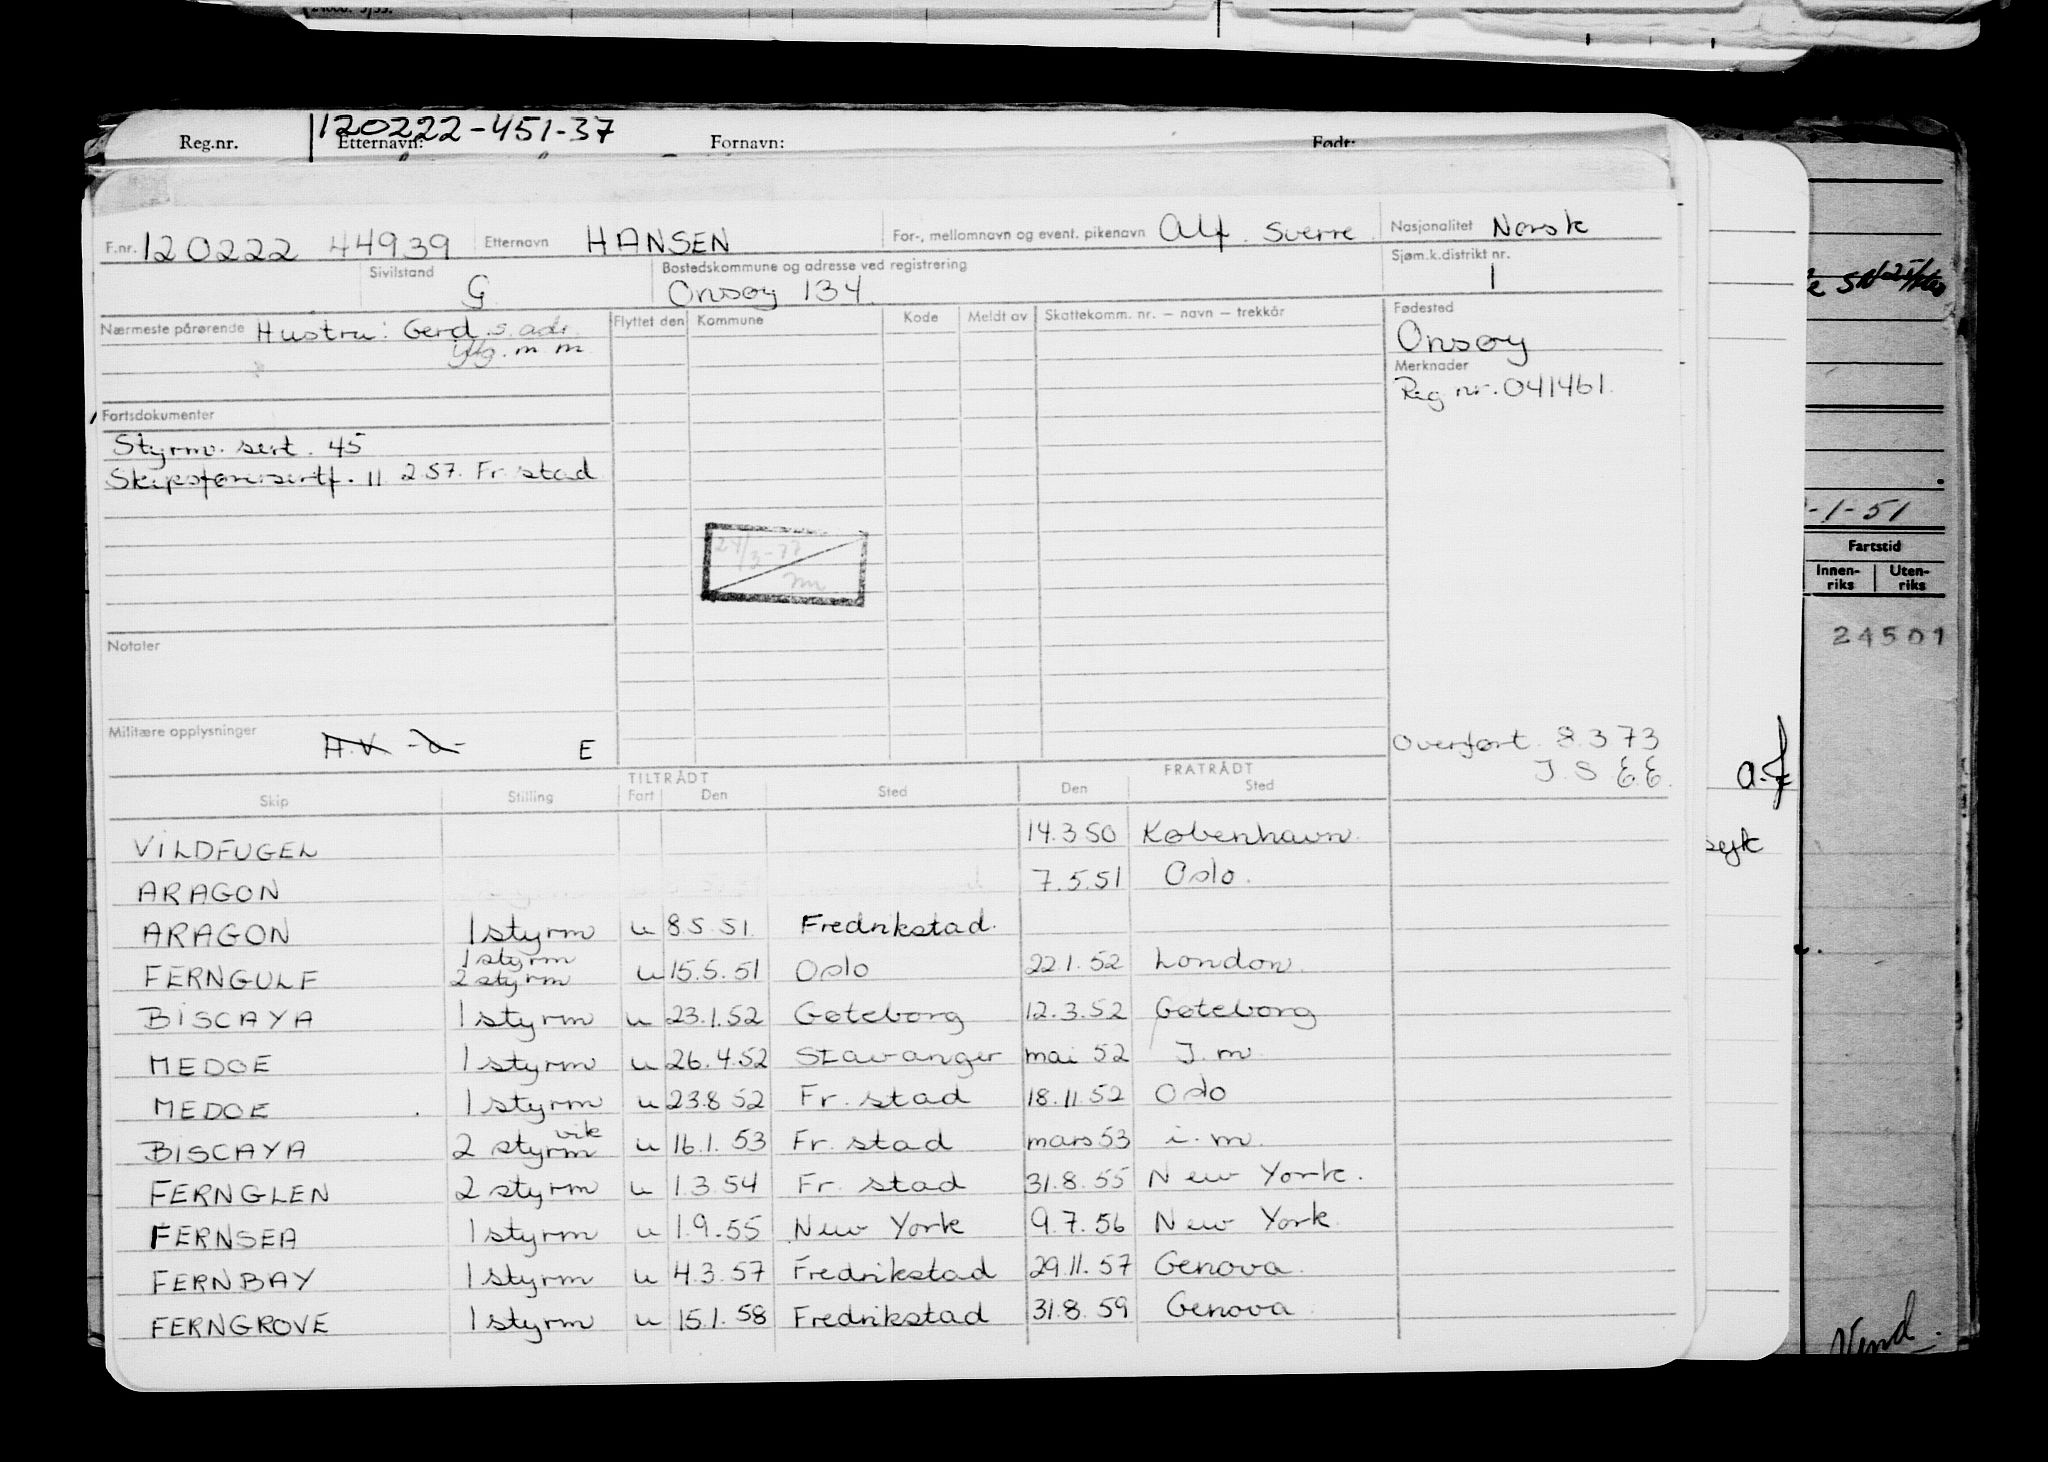 120222-451-37
Reg.nr. Etternavn: Fornavn: Født:
F.nr. 120222 44939 Etternavn HANSEN For-, mellomnavn og event. pikenavn Alf Sverre Nasjonalitet Norsk
Sivilstand G Bostedskommune og adresse ved registrering Onsøy 134 Sjøm.k.distrikt nr. 1
Nærmeste pårørende Hustru: Gerd s. adr. Flyttet den Kommune Kode Meldt av Skattekomm. nr. — navn — trekkår Fødested
Onsøy
m m
Merknader
Reg nr. 041461
Fartsdokumenter
Styrm. sert. 45
Skipsførersertf. 11 2.57. Fr. stad
24/3-77
-1-51
Fartstid
Innen-riks Uten-riks
24501
Notater
Militære opplysninger A.V. -a- E
Overført 8.3 73
J. S E.E.
TILTRÅDT FRATRÅDT
Skip Stilling Fart Den Sted Den Sted
VILDFUGEL 14.3 50 København
ARAGON 7.5.51 Oslo.
ARAGON 1 styrm u 8.5.51 Fredrikstad.
1 styrm
FERNGULF 2 styrm u 15.5.51 Oslo 22.1.52 London.
BISCAYA 1 styrm u 23.1.52 Gøteborg 12.3.52 Gøteborg
MEDOE 1 styrm u 26.4.52 Stavanger mai 52 I.m
MEDOE 1 styrm u 23.8 52 Fr. stad 18.11.52 Oslo
vik
BISCAYA 2 styrm u 16.1.53 Fr. stad mars 53 i.m.
FERNGLEN 2 styrm u 1.3.54 Fr. stad 31.8.55 New York.
FERNSEA 1 styrm u 1.9.55 New York 9.7.56 New York
FERNBAY 1 styrm u 4.3.57 Fredrikstad 29.11.57 Genova.
FERNGROVE 1 styrm u 15.1.58 Fredrikstad 31.8.59 Genova
Vend.